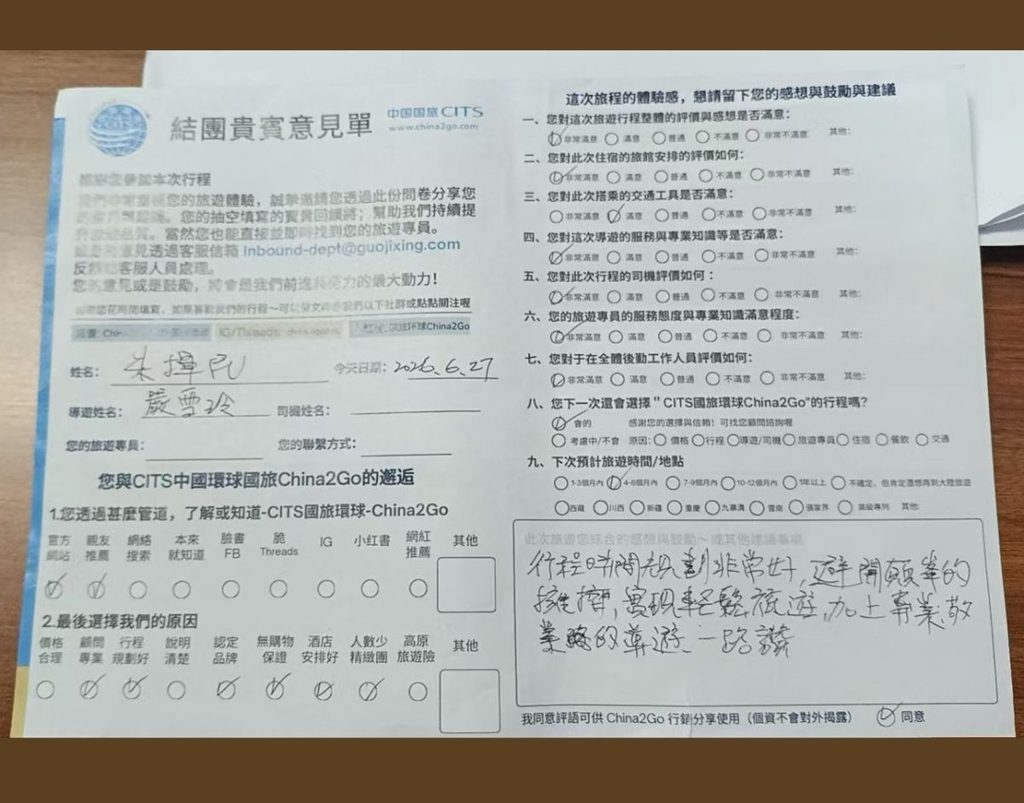 結團貴賓意見單
中国国旅CITS
www.china2go.com
參加本次行程
您的旅遊體驗，誠摯邀請您透過此份問卷分享您
您的抽空填寫的寶貴回饋將；幫助我們持續提
當然您也能直接並即時找到您的旅遊專員。
意見透過客服信箱 Inbound-dept@guojixing.com
客服人員處理。
您的意見或是鼓勵，將會是我們前進與努力的最大動力！
IG/Threads:
环球China2Go
姓名：朱揮民 今天日期：2026.6.27
導遊姓名：嚴雪玲 司機姓名：
您的旅遊專員： 您的聯繫方式：
您與CITS中國環球國旅China2Go的邂逅
1.您透過甚麼管道，了解或知道-CITS國旅環球-China2Go
官方網站 親友推薦 網絡搜索 本來就知道 臉書FB 脆Threads IG 小红書 網紅推薦 其他
2.最後選擇我們的原因
價格合理 顧問專業 行程規劃好 說明清楚 認定品牌 無購物保證 酒店安排好 人數少精緻團 高原旅遊險 其他
這次旅程的體驗感，懇請留下您的感想與鼓勵與建議
一、您對這次旅遊行程整體的評價與感想是否滿意：
非常滿意 滿意 普通 不滿意 非常不滿意 其他：
二、您對此次住宿的旅館安排的評價如何：
非常滿意 滿意 普通 不滿意 非常不滿意 其他：
三、您對此次搭乘的交通工具是否滿意：
非常滿意 滿意 普通 不滿意 非常不滿意 其他：
四、您對這次導遊的服務與專業知識等是否滿意：
非常滿意 滿意 普通 不滿意 非常不滿意 其他：
五、您對此次行程的司機評價如何：
非常滿意 滿意 普通 不滿意 非常不滿意 其他：
六、您的旅遊專員的服務態度與專業知識滿意程度：
非常滿意 滿意 普通 不滿意 非常不滿意 其他：
七、您對于在全體後勤工作人員評價如何：
非常滿意 滿意 普通 不滿意 非常不滿意 其他：
八、您下一次還會選擇"CITS國旅環球China2Go"的行程嗎？
會的 感謝您的選擇與信賴！可找您顧問諮詢喔
考慮中/不會 原因： 價格 行程 導遊/司機 旅遊專員 住宿 餐飲 交通
九、下次預計旅遊時間/地點
1-3個月內 4-6個月內 7-9個月內 10-12個月內 1年以上 不確定，但肯定還想再到大陸旅遊
西藏 川西 新疆 重慶 九寨溝 雲南 張家界 高級專列 其他：
此次旅遊您綜合的感想與鼓勵～或其他建議事項
行程時間規劃非常好,避開顛峯的
擁擠,實現輕鬆旅遊,加上專業,敬
業的導遊一路讚
我同意評語可供 China2Go 行銷分享使用（個資不會對外揭露） 同意